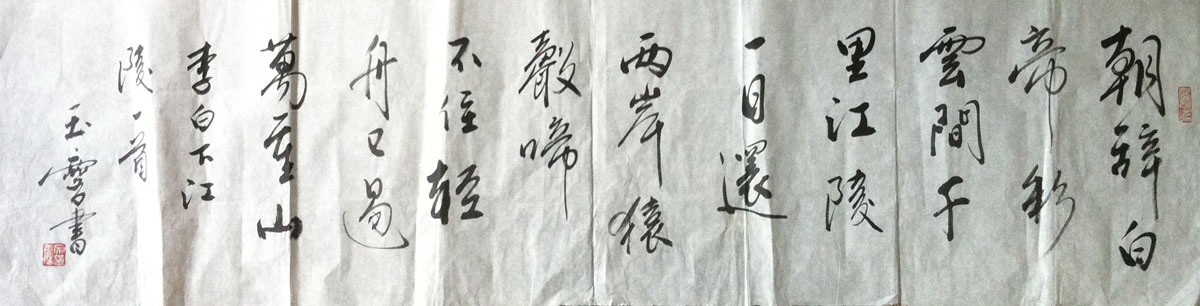 朝辞白
帝彩
雲間千
里江陵
一日還
两岸猿
聲啼
不住輕
舟已過
萬重山
李白下江
陵一首
玉雪書